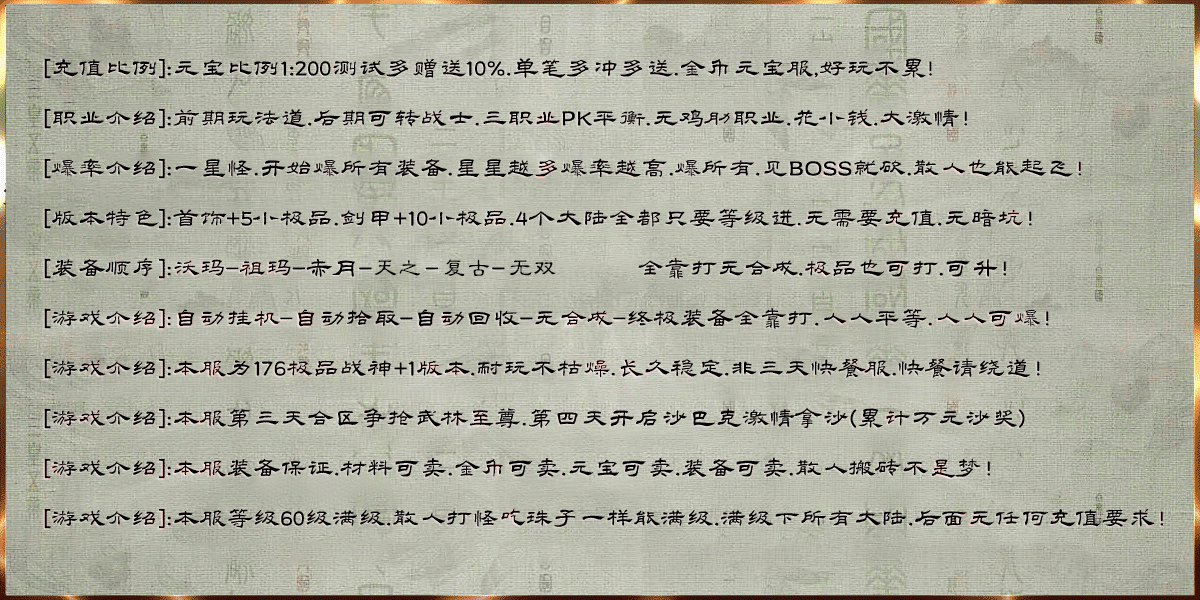 [充值比例]:元宝比例1:200测试多赠送10%.单笔多冲多送.金币元宝服,好玩不累!
[职业介绍]:前期玩法道.后期可转战士.三职业PK平衡.无鸡肋职业.花小钱.大激情!
[爆率介绍]:一星怪.开始爆所有装备.星星越多爆率越高.爆所有.见BOSS就砍.散人也能起飞!
[版本特色]:首饰+5小极品.剑甲+10小极品.4个大陆全都只要等级进.无需要充值.无暗坑!
[装备顺序]:沃玛-祖玛-赤月-天之-复古-无双 全靠打无合成.极品也可打.可升!
[游戏介绍]:自动挂机-自动拾取-自动回收-无合成-终极装备全靠打.人人平等.人人可爆!
[游戏介绍]:本服为176极品战神+1版本.耐玩不枯燥.长久稳定.非三天快餐服.快餐请绕道!
[游戏介绍]:本服第三天合区争抢武林至尊.第四天开启沙巴克激情拿沙(累计万元沙奖)
[游戏介绍]:本服装备保证.材料可卖.金币可卖.元宝可卖.装备可卖.散人搬砖不是梦!
[游戏介绍]:本服等级60级满级.散人打怪吃珠子一样能满级.满级下所有大陆.后面无任何充值要求!